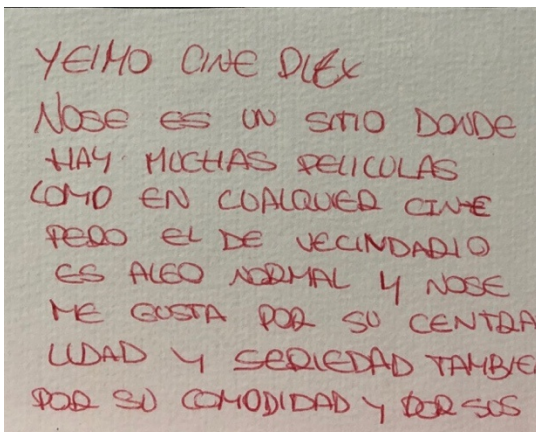 YEIMO CINE PLEX
NOSE ES UN SITIO DONDE
HAY MUCHAS PELICULAS
COMO EN CUALQUIER CINE
PERO EL DE VECINDARIO
ES ALGO NORMAL Y NOSE
ME GUSTA POR SU CENTRA
LIDAD Y SERIEDAD TAMBIE
POR SU COMODIDAD Y POR SUS